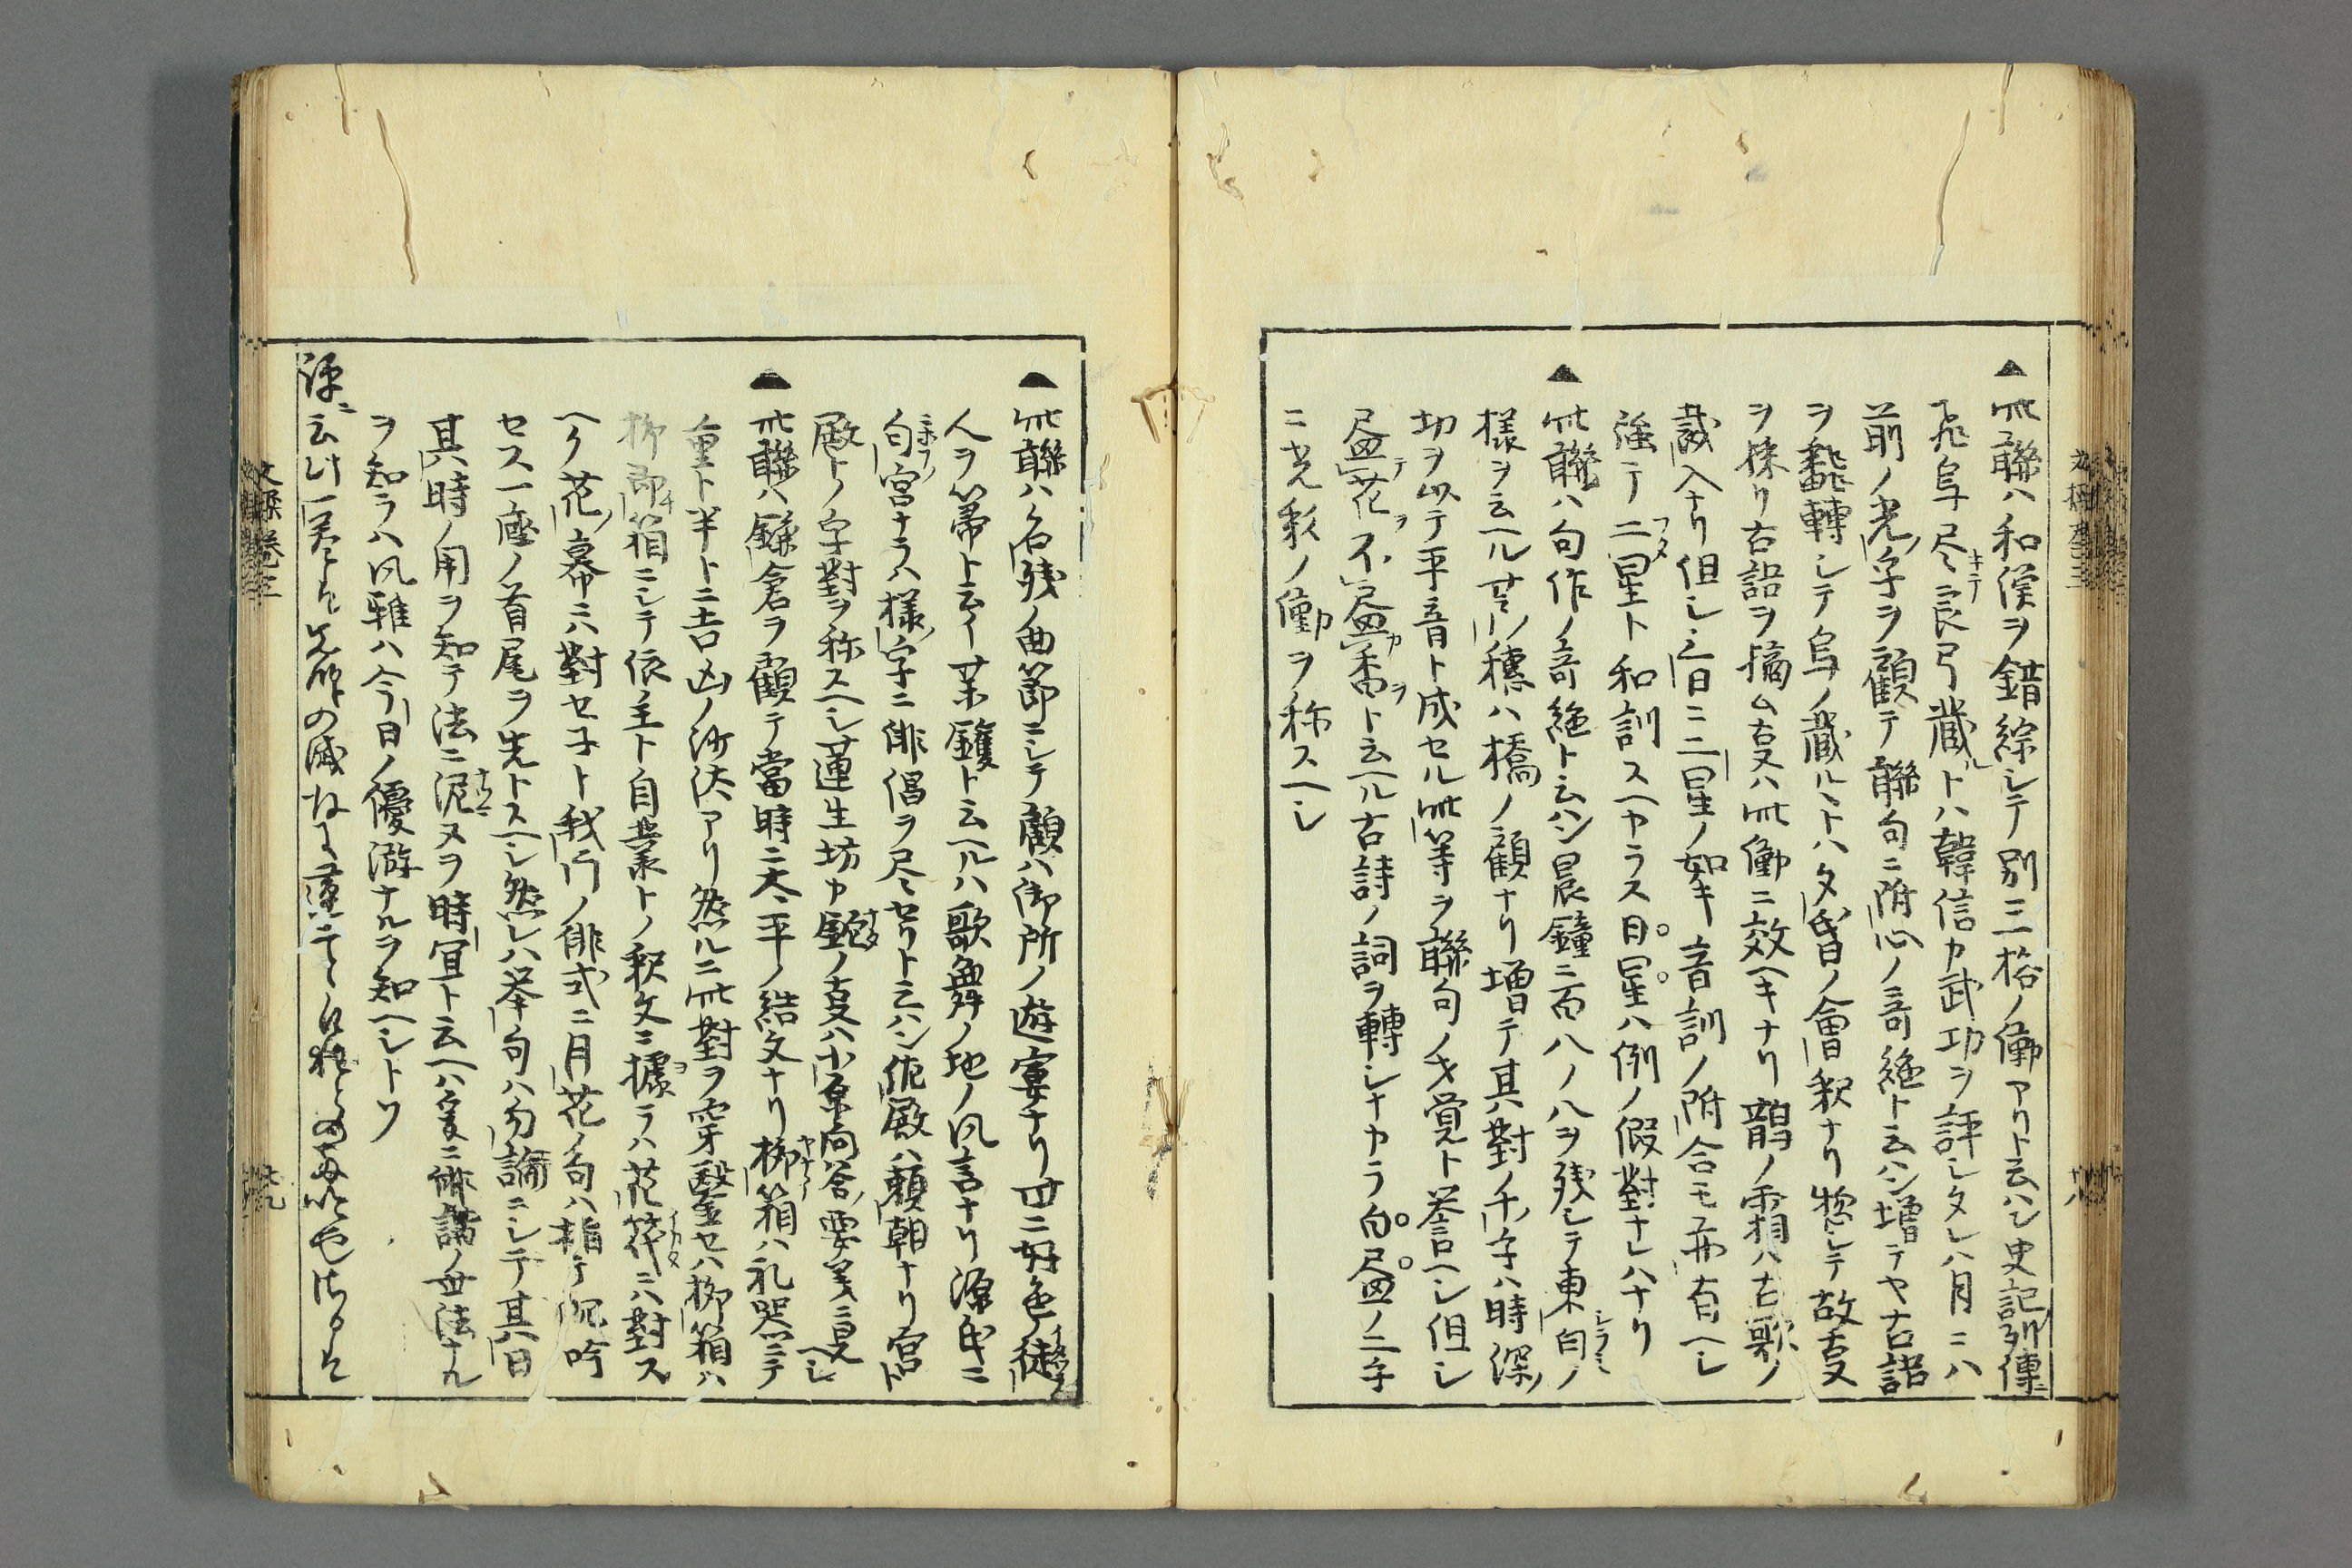 ▲此聯ハ和漢ヲ錯綜シテ別ニ一格ノ働アリト云ハン史記列傳ニ
飛鳥尽テ良弓蔵ルトハ韓信カ武功ヲ評シタレハ月ニハ
前ノ光ノ字ヲ顧テ聯句ニ附心ノ奇絶ト云ハン増テヤ古詩
ヲ飜轉シテ鳥ノ蔵ルヽトハ夕昏ノ會釈ナリ惣シテ故事
ヲ採リ古語ヲ摘ム事ハ此働ニ效ヘキナリ鵲ノ霜ハ古歌ノ
裁入ナリ但シ三日ニ二星ノ如キ音訓ノ附合モ希有ヘシ
強テ二星ト和訓スヘカラス日星ハ例ノ假對ナレハナリ
▲此聯ハ句作ノ奇絶ト云ハン晨鐘ニ百八ノ八ヲ残シテ東白ノ
様ヲ云ヘル其穂ハ橋ノ顧ナリ増テ其對ノ千ノ字ハ時深ノ
功ヲ以テ平音ト成セル此等ヲ聯句ノ才覚ト答ヘシ但シ
尽花ヲ不尽香ヲト云ヘル古詩ノ詞ヲ轉シナカラ白尽ノ二字
ニ光彩ノ働ヲ称スヘシ
▲此聯ハ名残ノ曲節ニシテ顧ハ御所ノ遊宴ナリ世ニ好色ノ徒
人ヲ箒ト云イ茶鑵ト云ヘルハ歌舞ノ地ノ風言ナリ源氏ニ
匂宮ナラハ様ノ字ニ俳倡ヲ尽セリト云ハン佐殿ハ頼朝ナリ宮ト
殿トノ字對ヲ称スヘシ蓮生坊カ鉈ノ事ハ小原問答ノ要文ニ見ヘシ
▲此聯ハ鎌倉ヲ顧テ當時ニ太平ノ結文ナリ柳箱ハ礼器ニテ
重ト半トニ吉凶ノ沙汰アリ然ルニ此對ヲ穿鑿セハ柳箱ハ
柳節箱ニシテ依主ト自業トノ釈文ニ據ラハ花筏ニハ對ス
ヘク花ノ幕ニハ對セヌト我門ノ俳式ニ月花ノ句ハ指テ沉吟
セス一座ノ首尾ヲ先トスヘシ然レハ挙句ハ勿論ニシテ其日
其時ノ用ヲ知テ法ニ泥ヌヲ時宜ト云ヘハ爰ニ俳諧ノ無法ナル
ヲ知ラハ風雅ハ今日ノ優游ナルヲ知ヘシトソ
文操 巻三